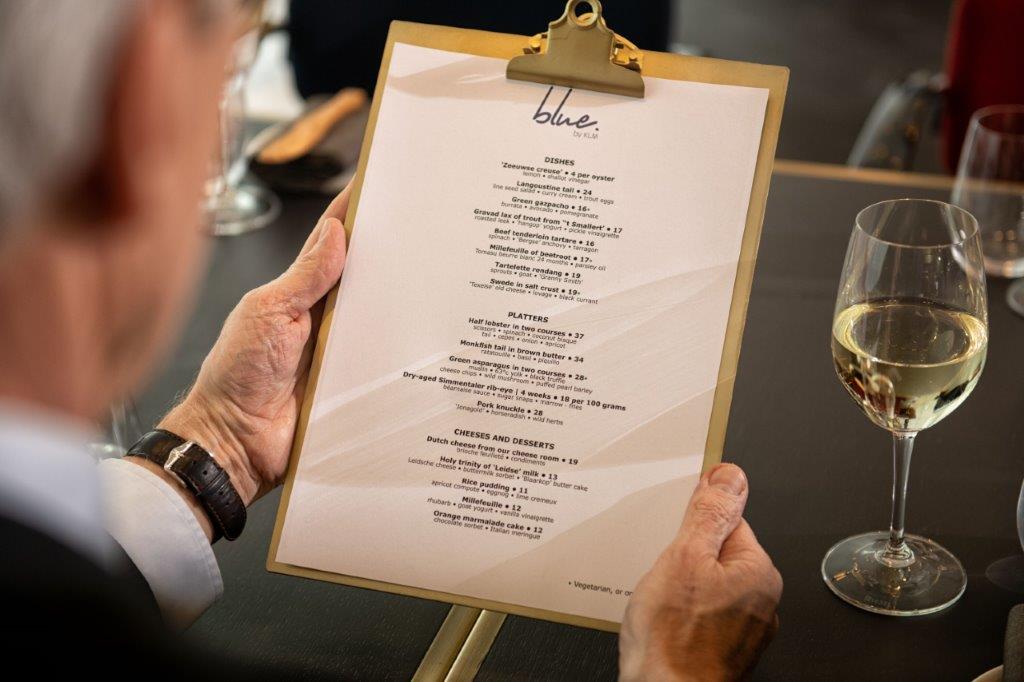 blue.
by KLM
DISHES
'Zeeuwse creuse' • 4 per oyster
lemon • shallot vinegar
Langoustine tail • 24
line seed salad • curry cream • trout eggs
Green gazpacho • 16+
burrata • avocado • pomegranate
Gravad lax of trout from "t Smallert' • 17
roasted leek • 'hangop' yogurt • pickle vinaigrette
Beef tenderloin tartare • 16
spinach • 'Bergse' anchovy • tarragon
Millefeuille of beetroot • 17+
Tomasu beurre blanc 24 months • parsley oil
Tartelette rendang • 19
sprouts • goat • 'Granny Smith'
Swede in salt crust • 19+
'Texelse' old cheese • lovage • black currant
PLATTERS
Half lobster in two courses • 37
scissors • spinach • coconut bisque
tail • cepes • onion • apricot
Monkfish tail in brown butter • 34
ratatouille • basil • piquillo
Green asparagus in two courses • 28+
63°c yolk • black truffle
cheese chips • wild mushroom • puffed pearl barley
Dry-aged Simmentaler rib-eye | 4 weeks • 18 per 100 grams
bearnaise sauce • sugar snaps • marrow • fries
Pork knuckle • 28
'Jonagold' • horseradish • wild herbs
CHEESES AND DESSERTS
Dutch cheese from our cheese room • 19
brioche feuilleté • condiments
Holy trinity of 'Leidse' milk • 13
Leidsche cheese • buttermilk sorbet • 'Blaarkop' butter cake
Rice pudding • 11
apricot compote • eggnog • lime cremeux
Millefeuille • 12
rhubarb • goat yogurt • vanilla vinaigrette
Orange marmalade cake • 12
chocolate sorbet • Italian meringue
+ Vegetarian, or